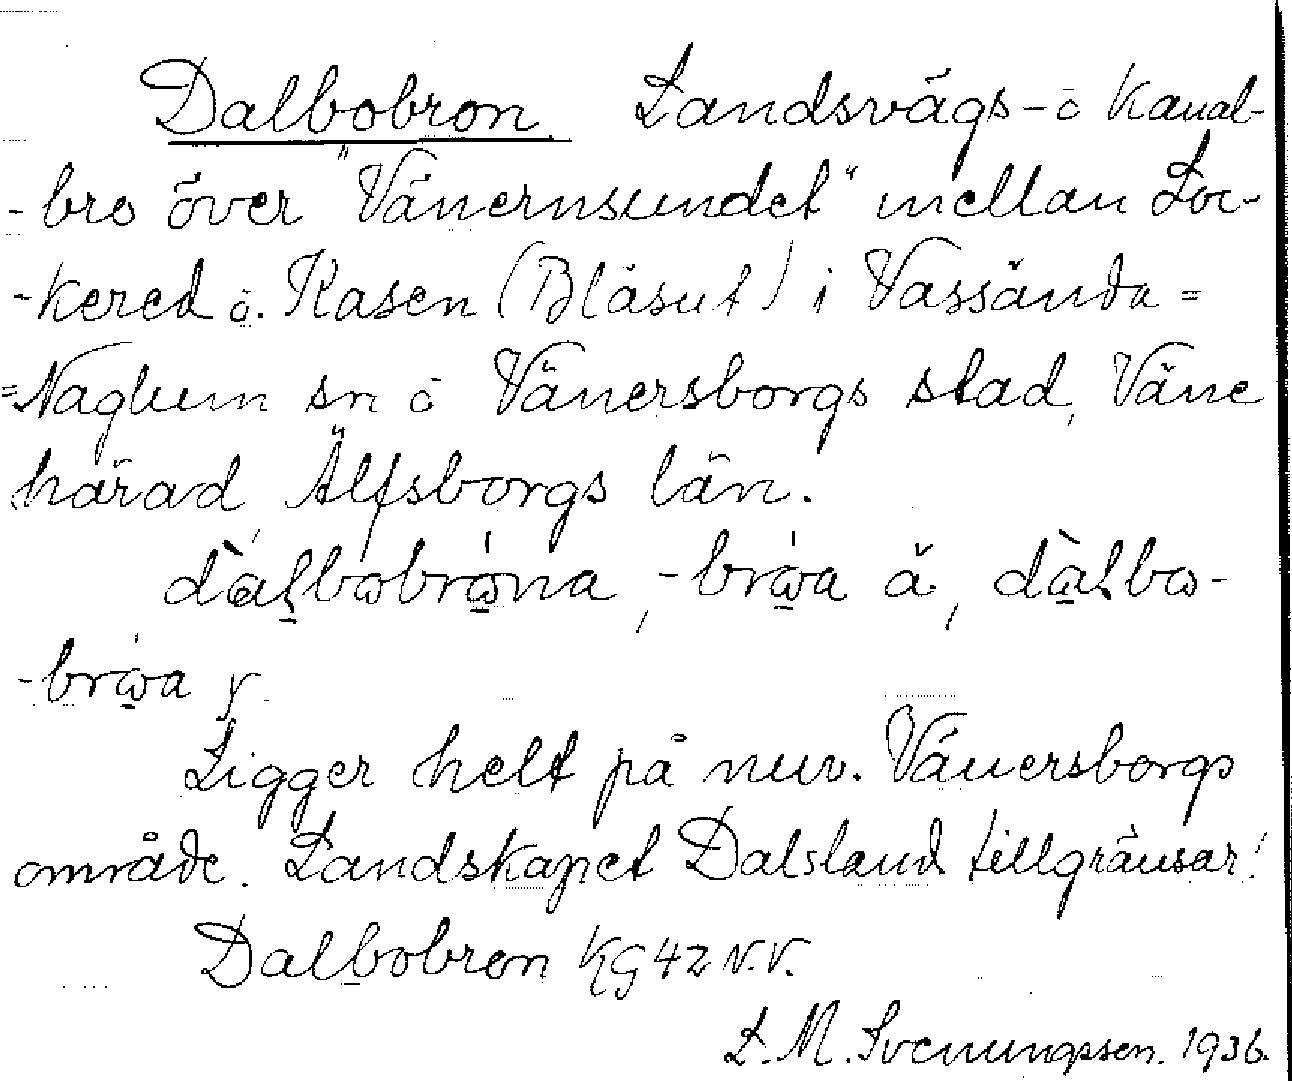 Dalbobron. Landsvägs- o Kanal-
-bro över "Vänernsundet" mellan Loc-
-kered o. Kasen (Blåsut) i Vassända=
=Naglum sn o Vänersborgs stad, Väne
härad, Älfsborgs län.
-bro͡a y.
Ligger helt på nuv. Vänersborgs
område. Landskapet Dalsland tillgränsar!
Dalbobron KG 42 N.V.
L. M. Svenungsson. 1936.